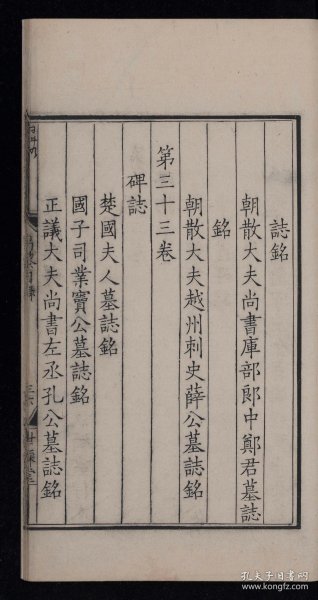 誌銘
朝散大夫尚書庫部郎中鄭君墓誌
銘
朝散大夫越州刺史薛公墓誌銘
第三十三卷
碑誌
楚國夫人墓誌銘
國子司業竇公墓誌銘
正議大夫尚書左丞孔公墓誌銘
孔夫子旧书网
www.kongfz.com